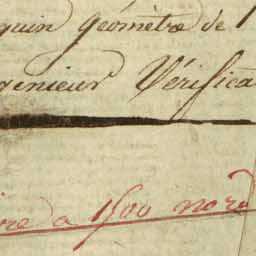 quin géomètre de l
génieur Vérifica
ire a 1500 nord